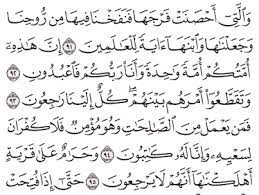 وَالَّتِي أَحْصَنَتْ فَرْجَهَا فَنَفَخْنَا فِيهَا مِن رُّوحِنَا
وَجَعَلْنَاهَا وَابْنَهَا ءَايَةً لِّلْعَالَمِينَ ٩١ إِنَّ هَٰذِهِ
أُمَّتُكُمْ أُمَّةً وَاحِدَةً وَأَنَا۠ رَبُّكُمْ فَاعْبُدُونِ ٩٢
وَتَقَطَّعُوا أَمْرَهُم بَيْنَهُمْ كُلٌّ إِلَيْنَا رَاجِعُونَ ٩٣
فَمَن يَعْمَلْ مِنَ الصَّالِحَاتِ وَهُوَ مُؤْمِنٌ فَلَا كُفْرَانَ
لِسَعْيِهِ وَإِنَّا لَهُ كَاتِبُونَ ٩٤ وَحَرَامٌ عَلَىٰ قَرْيَةٍ
أَهْلَكْنَاهَا أَنَّهُمْ لَا يَرْجِعُونَ ٩٥ حَتَّىٰ إِذَا فُتِحَتْ